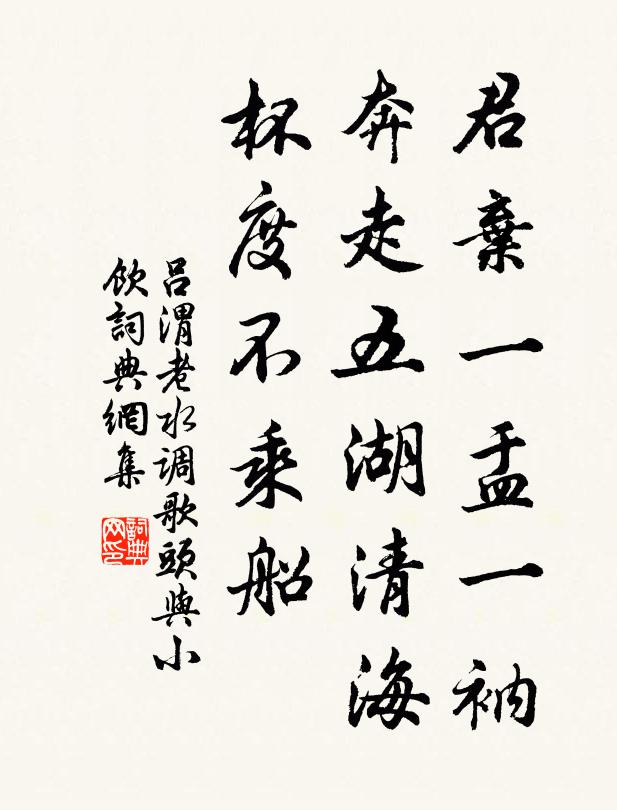 君棄一盂一衲
奔走五湖清海
杯度不乘船
呂渭老水调歌頭與小
飲詞典網集
詞典
网印